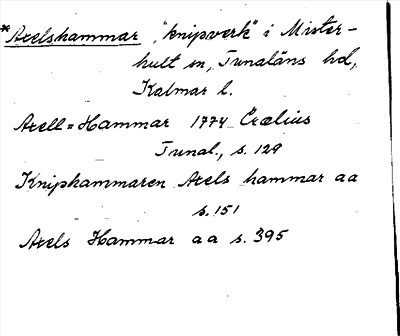 *Axelshammar, "knipverk" i Mister-
hult sn, Tunaläns hd,
Kalmar l.
Axell=Hammar 1774 Crælius
Tunal., s. 129
Kniphammaren Axels hammar aa
s. 151
Axels Hammar aa s. 395